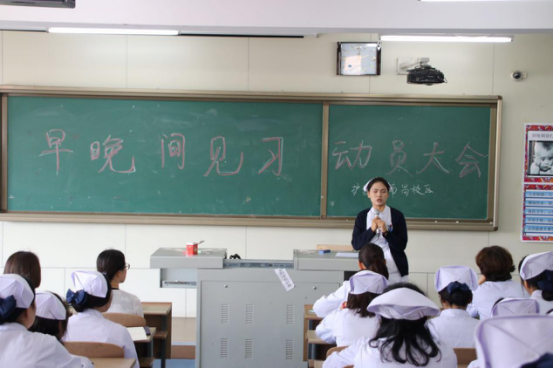 早晚间见习 动员大会